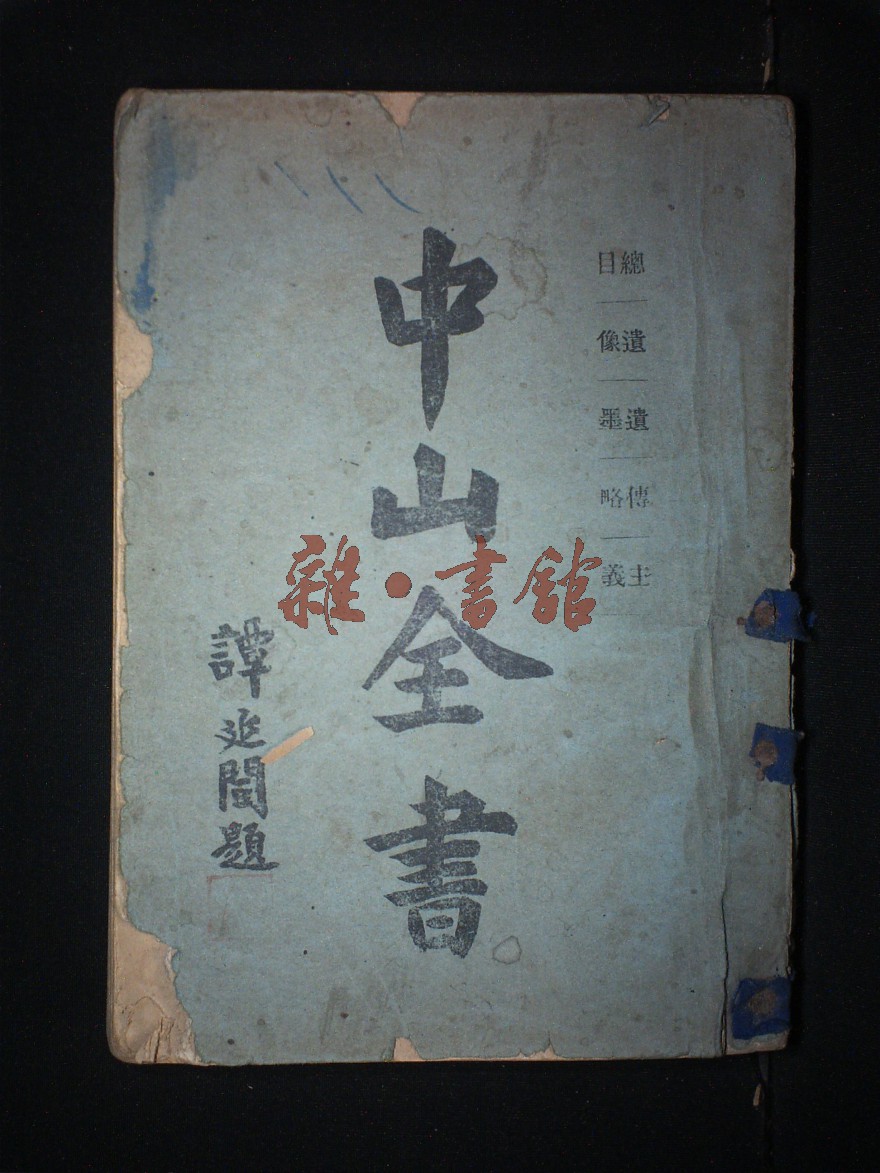 總目
遺像
遺墨
傳略
主義
中山全書
譚延闓題
雜·書館